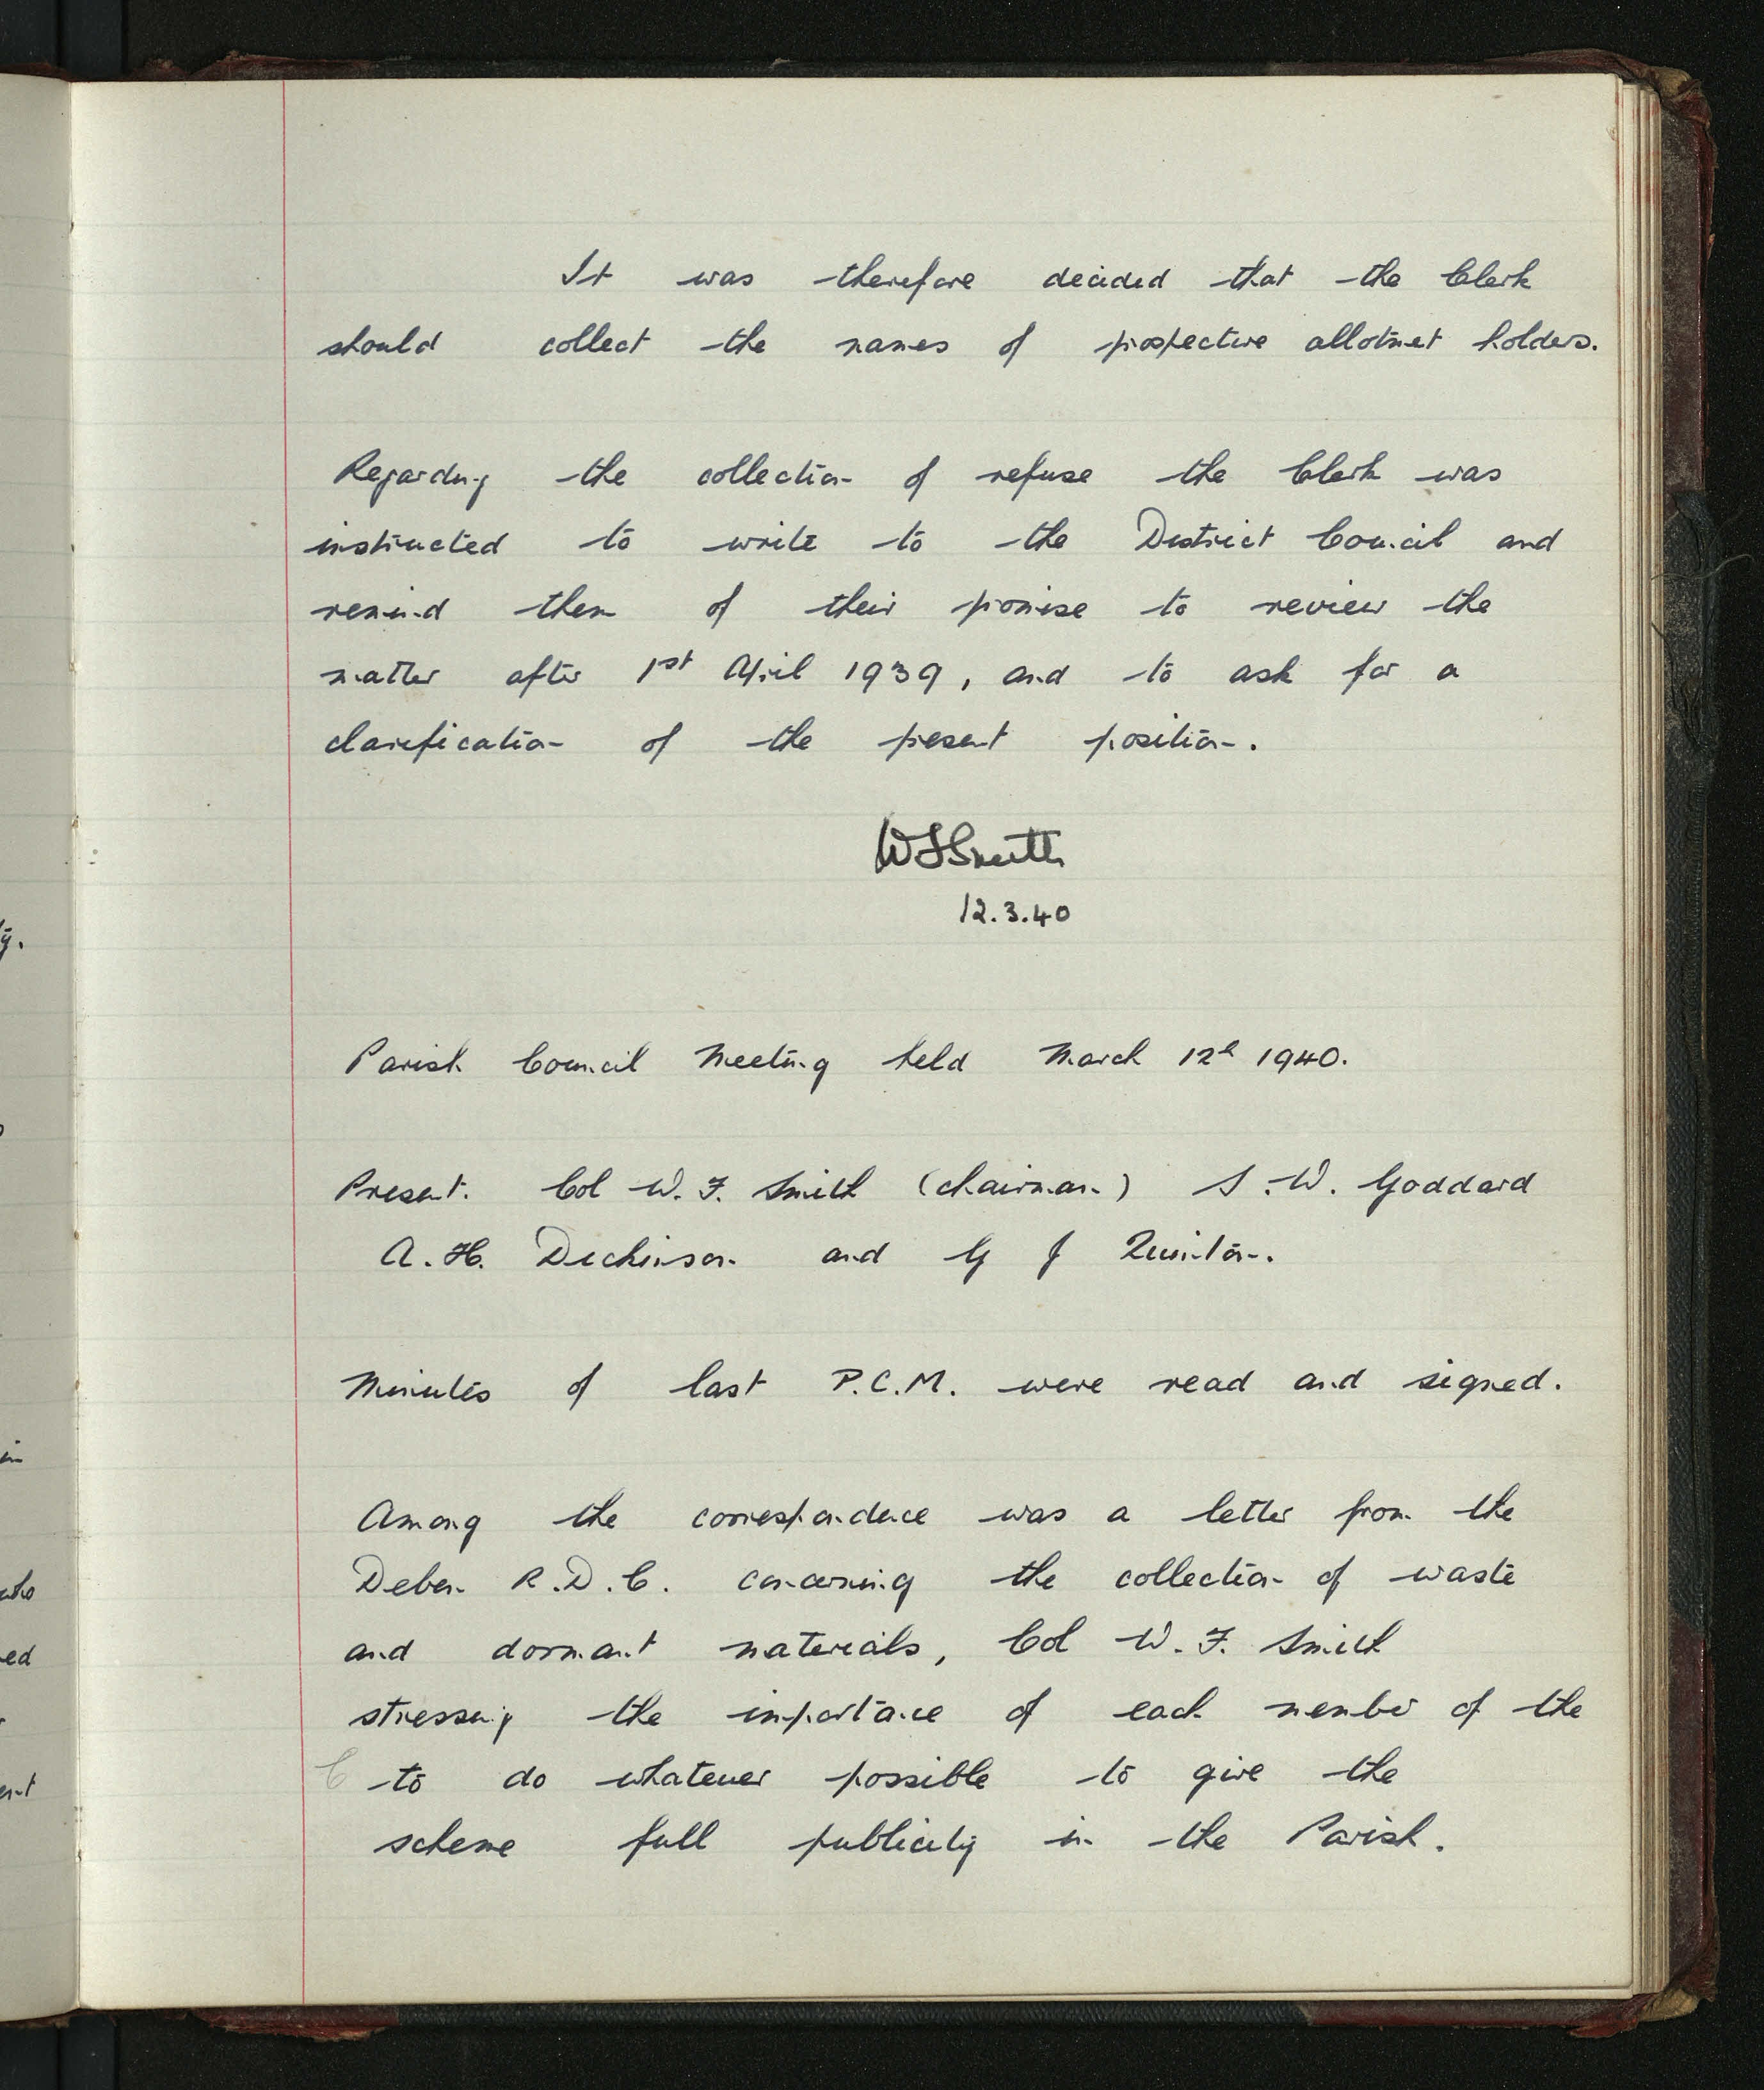 It was therefore decided that the Clerk
should collect the names of prospective allotmet holders.
Regarding the collection of refuse the Clerk was
instructed to write to the District Council and
remind them of their promise to review the
matter after 1st April 1939, and to ask for a
clarification of the present position.
WFSmith
12.3.40
Parish Council Meeting held March 12th 1940.
Present. Col W. F. Smith (chairman) S. W. Goddard
A. H. Dickinson and G J Quinton.
Minutes of last P.C.M. were read and signed.
Among the correspondence was a letter from the
Deben R.D.C. concerning the collection of waste
and dormant materials, Col W. F. Smith
stressing the importance of each member of the
C to do whatever possible to give the
scheme full publicity in the Parish.